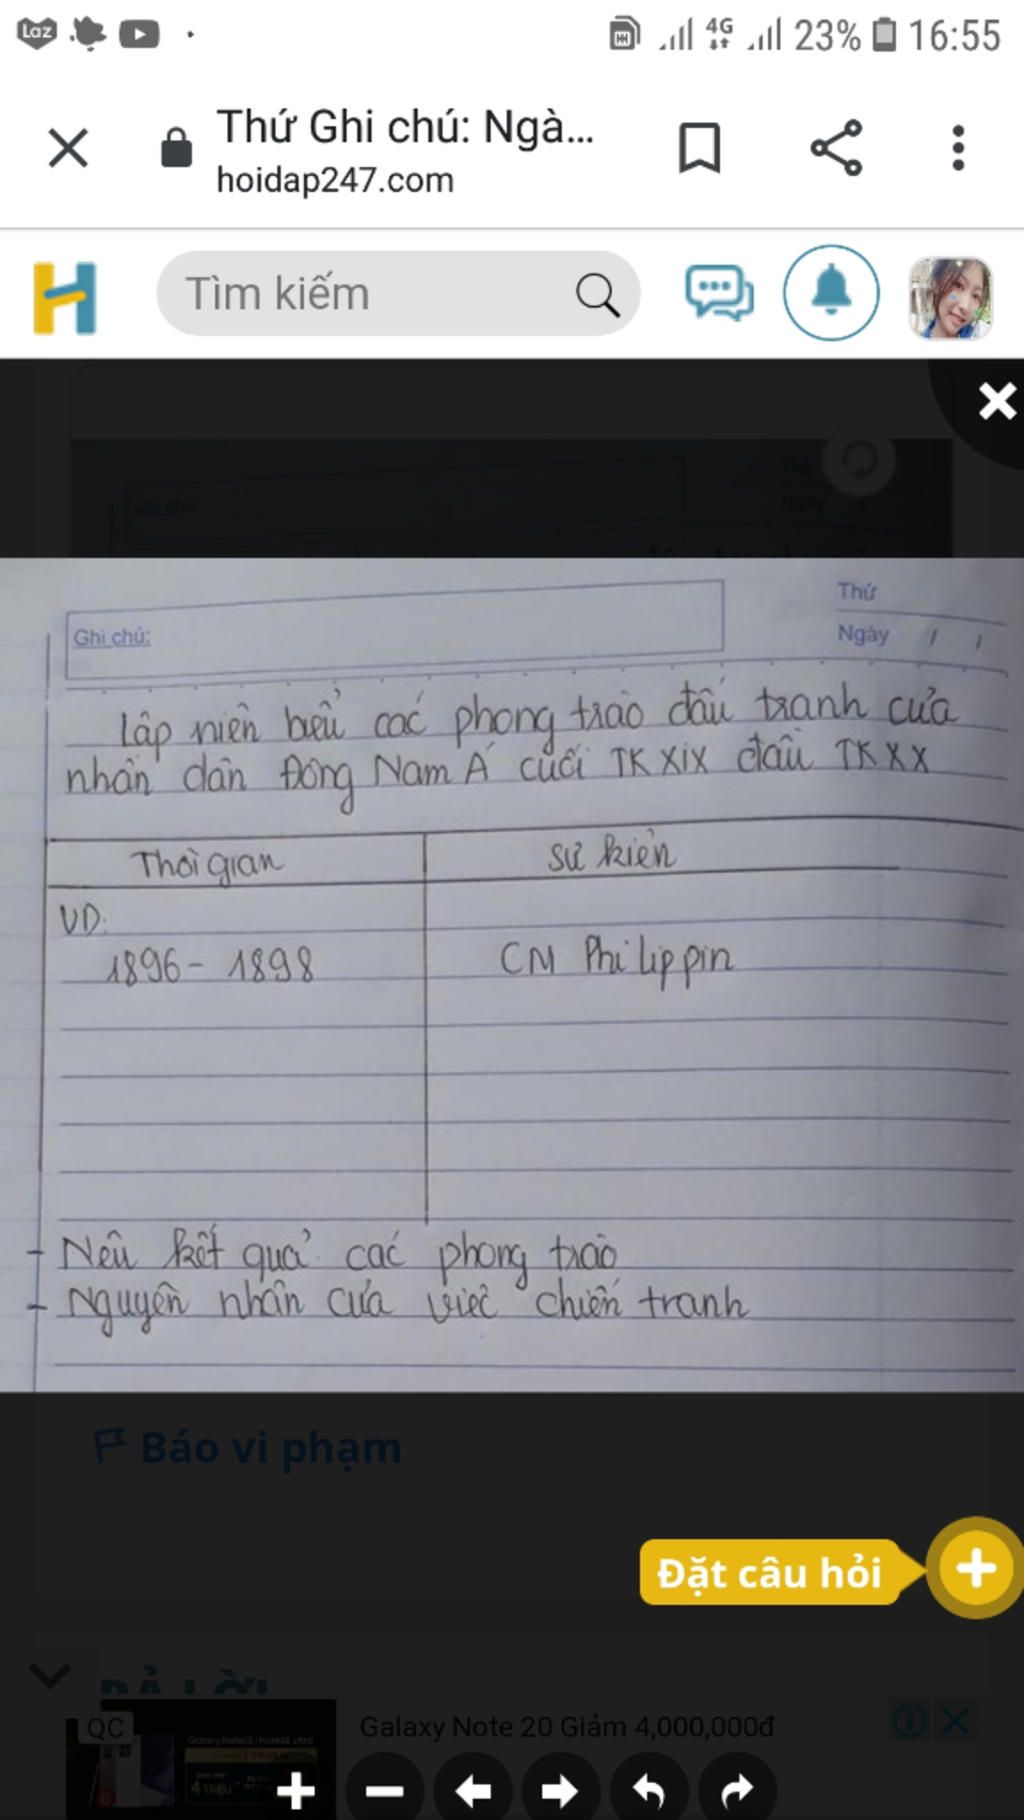 Laz
4G 23% 16:55
Thứ Ghi chú: Ngà...
hoidap247.com
H Tìm kiếm
Thứ
Ghi chú:
Ngày / /
Ghi chú:
Thứ
Ngày / /
Lập niên biểu các phong trào đấu tranh của
nhân dân Đông Nam Á cuối TK XIX đầu TK XX
Thời gian
Sự kiện
VD:
1896 - 1898
CM Philippin
- Nêu kết quả các phong trào
- Nguyên nhân của việc chiến tranh
Báo vi phạm
Đặt câu hỏi
QC
Galaxy Note 20 Giảm 4,000,000đ
4 TRIỆU